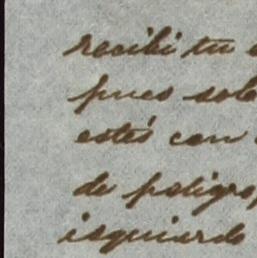 recibi tu
pues sola
estés con
de peligro,
isquierdo